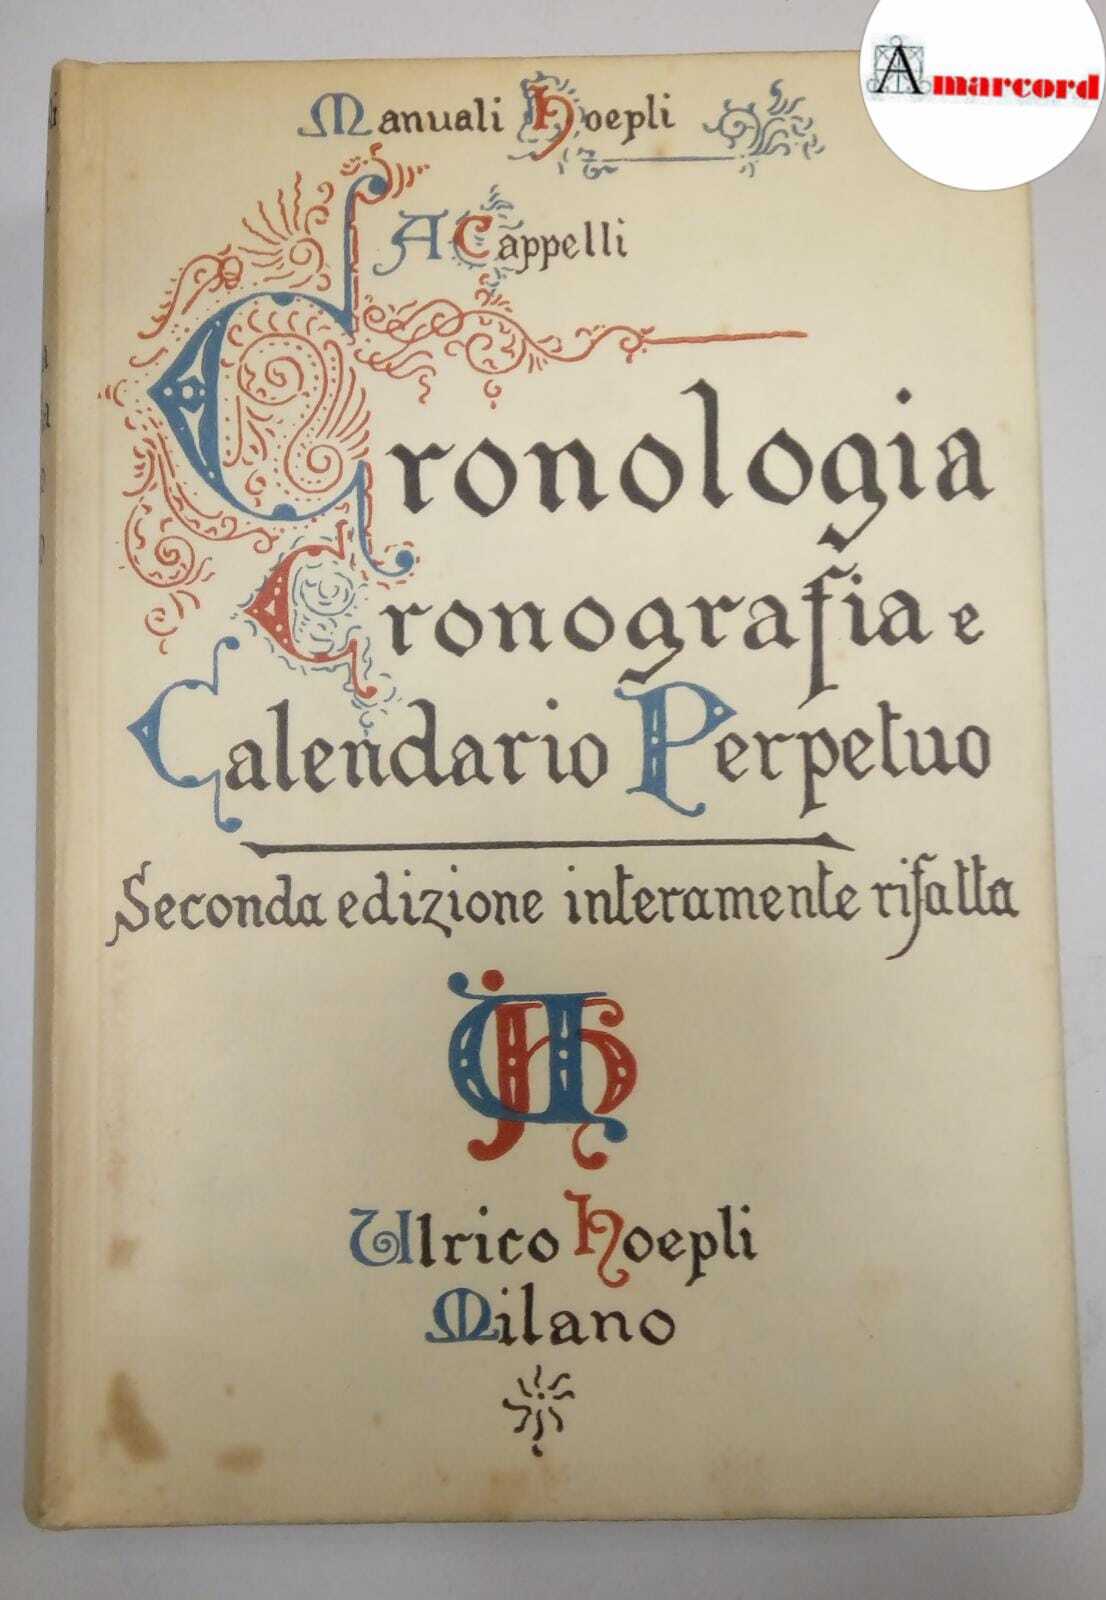 Amarcord
Manuali Hoepli
A Cappelli
Cronologia
Cronografia e
Calendario Perpetuo
Seconda edizione interamente rifatta
UH
Ulrico Hoepli
Milano